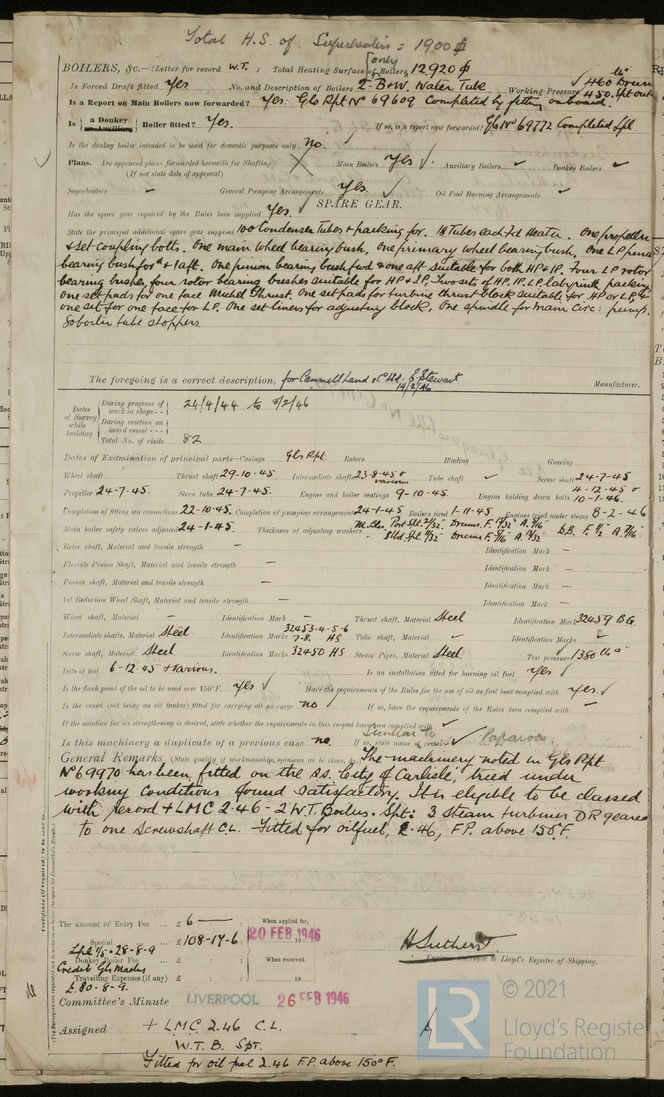 Total H.S. of Superheaters = 1900 ф
BOILERS, &c.—(Letter for record W.T. ) Total Heating Surface of Boilers (only) 12,920 ф
Is Forced Draft fitted Yes No. and Description of Boilers 2-B&W. Water Tube Working Pressure 460 Drum 450 Spt Out
Is a Report on Main Boilers now forwarded? Yes. Gls Rpt No 69609 Completed by fitting onboard.
Is a Donkey Boiler fitted? Yes. If so, is a report now forwarded? Gls No 69772 Completed Lpl
Is the donkey boiler intended to be used for domestic purposes only no.
Plans. Are approved plans forwarded herewith for Shafting Main Boilers Yes Auxiliary Boilers Donkey Boilers
(If not state date of approval)
Superheaters General Pumping Arrangements Yes Oil Fuel Burning Arrangements
SPARE GEAR.
Has the spare gear required by the Rules been supplied Yes.
State the principal additional spare gear supplied 100 Condenser Tubes & packing for. 18 Tubes each Fd Heater. One propeller
& set coupling bolts. One main wheel bearing bush, One primary wheel bearing bush, One LP pinion
bearing bush for'd & 1 aft. One pinion bearing bush fwd & one aft suitable for both HP & IP. Four LP rotor
bearing bushes, four rotor bearing bushes suitable for HP & IP. Two sets of HP. IP. LP labyrinth packing,
one set pads for one face Michel thrust. One set pads for turbine thrust block suitable for HP or LP &
one set for one face for LP. One set liners for adjusting block, One spindle for main Circ: pump.
80 boiler tube stoppers
The foregoing is a correct description, for Cammell Laird & Co Ltd. E. Stewart Manufacturer.
19/2/46
Dates of Survey while building
During progress of work in shops - - 24/4/44 to 8/2/46
During erection on board vessel - - -
Total No. of visits 82
Dates of Examination of principal parts—Casings Gls Rpt. Rotors Blading Gearing
Wheel shaft Thrust shaft 29-10-45. Intermediate shafts 23-8-45 & various Tube shaft Screw shaft 24-7-45
Propeller 24-7-45. Stern tube 24-7-45. Engine and boiler seatings 9-10-45. Engines holding down bolts 4-12-45 & 10-1-46.
Completion of fitting sea connections 22-10-45. Completion of pumping arrangements 24-1-45 Boilers fixed 1-11-45. Engines tried under steam 8-2-46
Main boiler safety valves adjusted 24-1-45. Thickness of adjusting washers
Rotor shaft, Material and tensile strength — Identification Mark —
Flexible Pinion Shaft, Material and tensile strength — Identification Mark —
Pinion shaft, Material and tensile strength — Identification Mark —
1st Reduction Wheel Shaft, Material and tensile strength — Identification Mark —
Wheel shaft, Material — Identification Mark — Thrust shaft, Material Steel Identification Mark 32459 BG.
Intermediate shafts, Material Steel Identification Marks 32453-4-5-6 7-8. HS Tube shaft, Material Identification Marks
Screw shaft, Material Steel Identification Marks 32450 HS Steam Pipes, Material Steel Test pressure 1380 lbs
Date of test 6-12-45 & various. Is an installation fitted for burning oil fuel yes
Is the flash point of the oil to be used over 150°F. yes Have the requirements of the Rules for the use of oil as fuel been complied with yes.
Is the vessel (not being an oil tanker) fitted for carrying oil as cargo no If so, have the requirements of the Rules been complied with —
If the notation for ice strengthening is desired, state whether the requirements in this respect have been complied with
Is this machinery a duplicate of a previous case no. If so, state name of vessel Similar to Paparoa
General Remarks (State quality of workmanship, opinions as to class, &c. The machinery noted in Gls Rpt
No 69970 has been fitted on the s.s. "City of Carlisle", tried under
working conditions & found satisfactory. It is eligible to be classed
with record + LMC 2.46 - 2 W.T. Boilers. Spt: 3 Steam turbines DR geared
to one Screwshaft C.L. Fitted for oil fuel, 2.46, F.P. above 150°F.
The amount of Entry Fee ... £ 6 — When applied for,
Special £ 108-17-6 20 FEB 1946
Lpl 28-8-9
Donkey Boiler Fee ... £ When received,
Credit Gls
Travelling Expenses (if any) £
£ 80-8-9.
Engineer Surveyor to Lloyd's Register of Shipping.
Committee's Minute LIVERPOOL 26 FEB 1946
Assigned + L.M.C. 2.46 C.L.
W.T.B. Spt.
Fitted for oil fuel 2.46 F.P. above 150°F.
LR © 2021
Lloyd's Register
Foundation